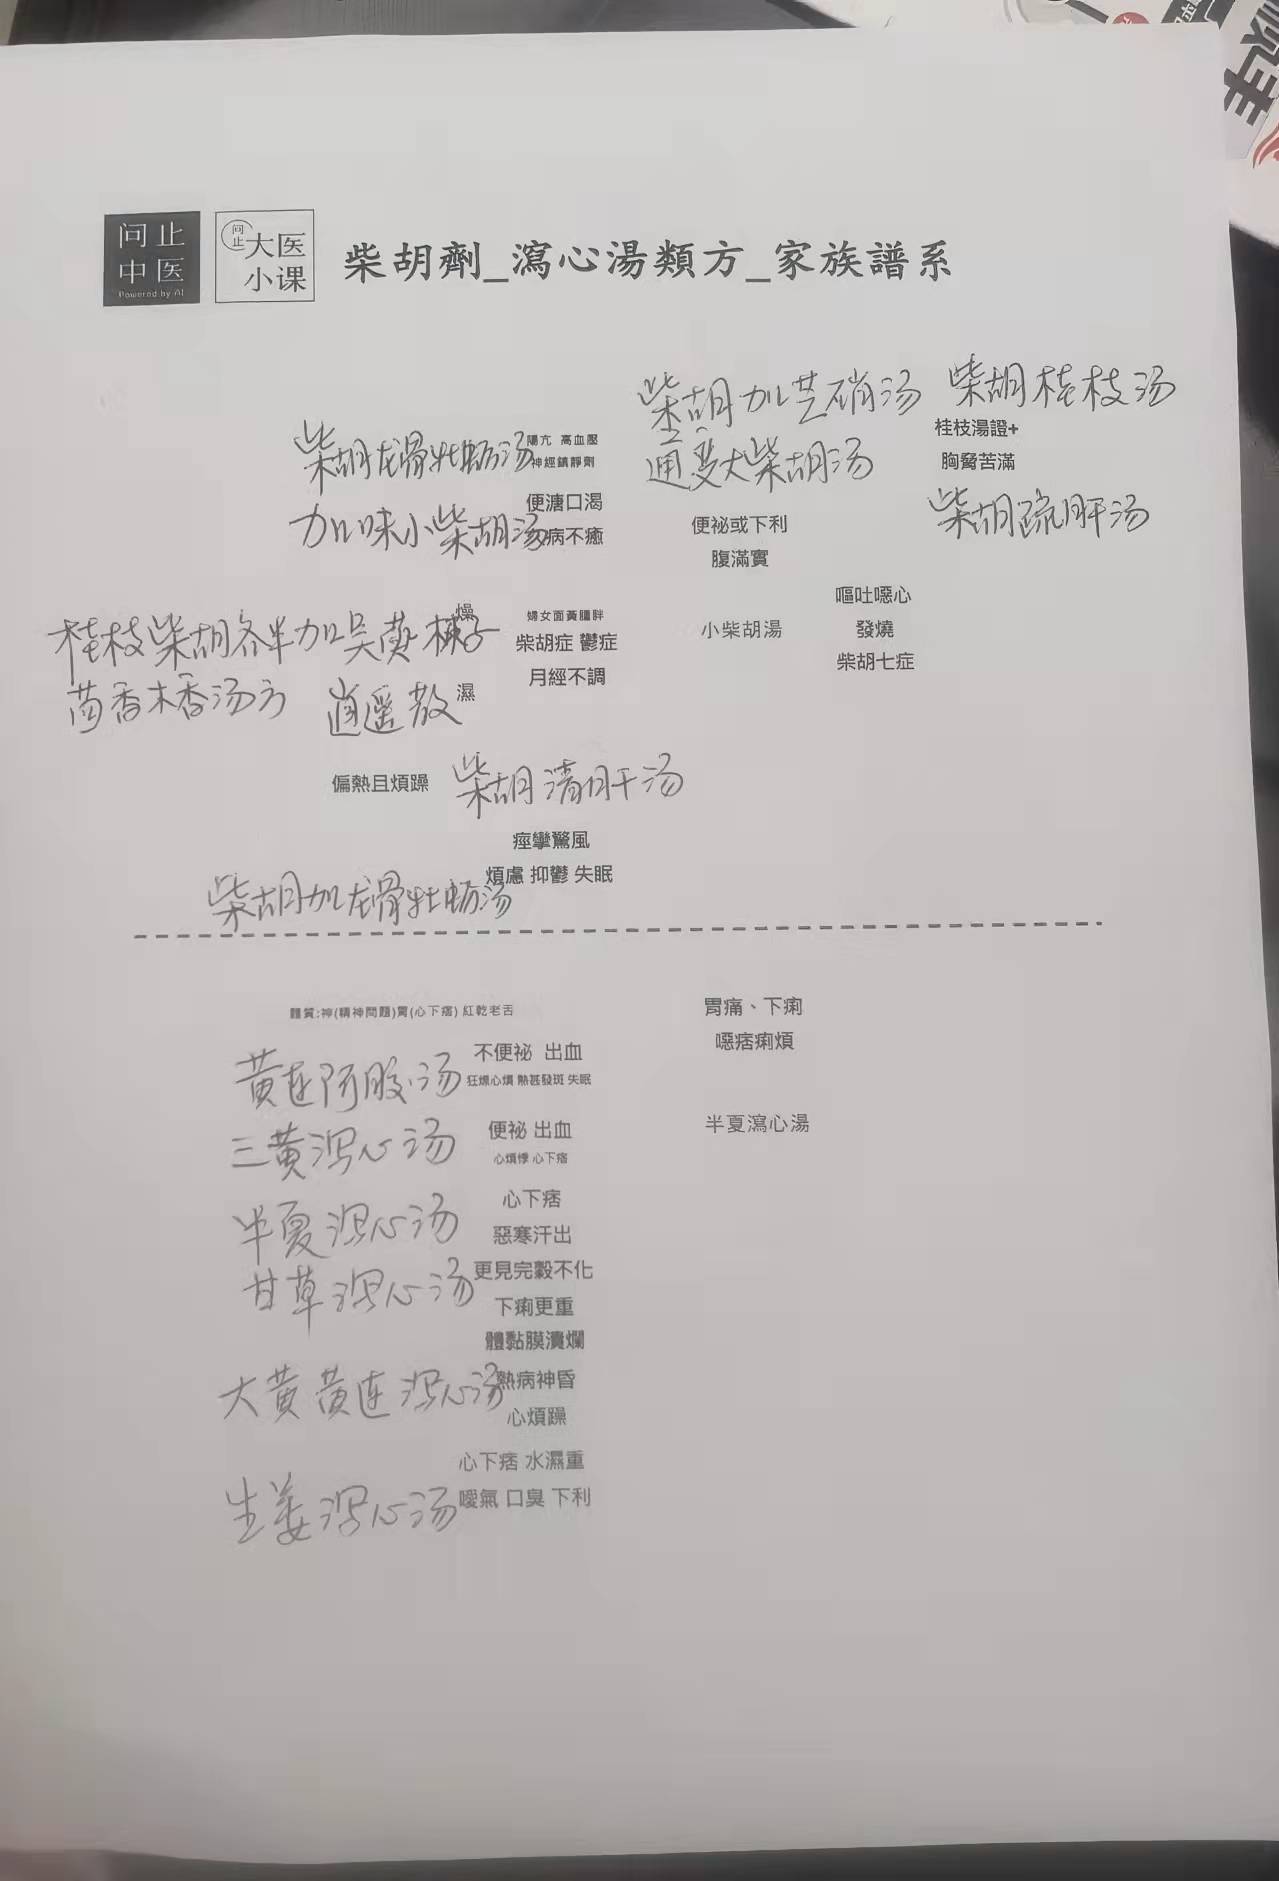 问止
中医
Powered by AI
问止
大医
小课
柴胡劑_瀉心湯類方_家族譜系
柴胡加芒硝汤
柴胡桂枝汤
柴胡龙骨牡蛎汤
陽亢 高血壓
神經鎮靜劑
大
通变大柴胡汤
桂枝湯證+
胸脅苦滿
加味小柴胡汤
便溏口渴
病不癒
便祕或下利
腹滿實
柴胡疏肝汤
嘔吐噁心
發燒
柴胡七症
小柴胡湯
桂枝柴胡各半加吴萸楝子
茴香木香汤方
燥
婦女面黃腫胖
柴胡症 鬱症
月經不調
逍遥散
濕
偏熱且煩躁
柴胡清肝汤
痙攣驚風
煩慮 抑鬱 失眠
柴胡加龙骨牡蛎汤
體質:神(精神問題)胃(心下痞) 紅乾老舌
胃痛、下痢
噁痞痢煩
黄连阿胶汤
不便祕 出血
狂燥心煩 熱甚發斑 失眠
三黄泻心汤
便祕 出血
心煩悸 心下痞
半夏瀉心湯
半夏泻心汤
心下痞
惡寒汗出
甘草泻心汤
更見完穀不化
下痢更重
體黏膜潰爛
大黄黄连泻心汤
熱病神昏
心煩躁
心下痞 水濕重
生姜泻心汤
噯氣 口臭 下利